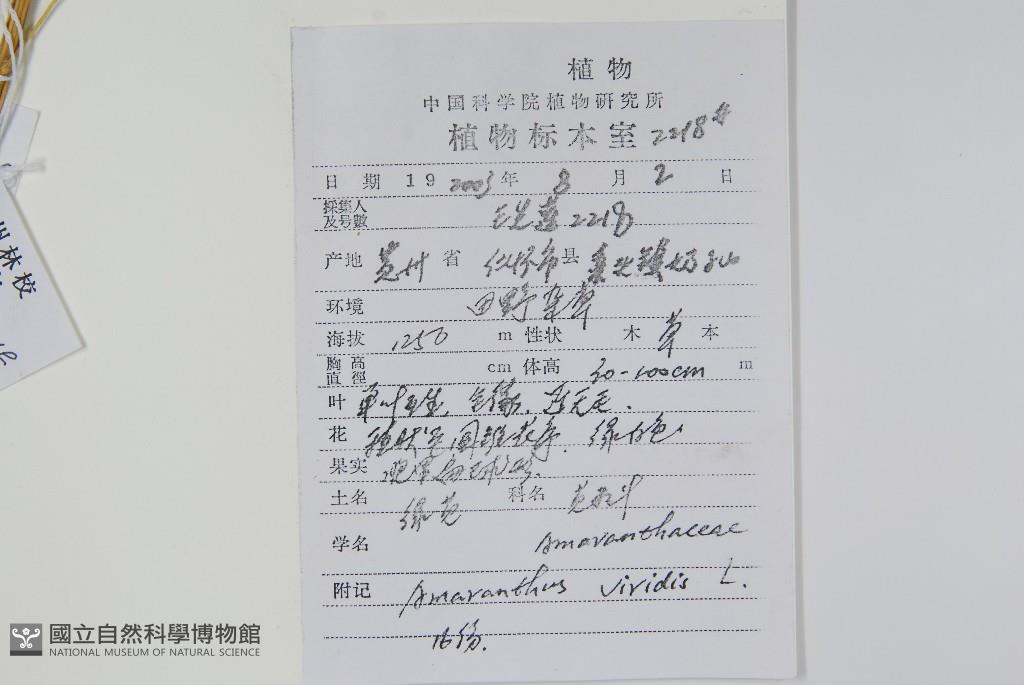 植物
中国科学院植物研究所
植物标本室 2218#
日期 19 2003年 8 月 2 日
採集人及号數 2218
产地 贵州 省 仁怀市 县
环境 田野 草
海拔 1250 m 性状 木 草 本
胸高直徑 cm 体高 30-100cm m
叶 单叶互生, 全缘.
花 穗状 圆锥花序. 绿白色.
果实
土名 绿苋 科名 苋科
学名 Amaranthaceae
附记 Amaranthus viridis L.
16份.
林校
國立自然科學博物館
NATIONAL MUSEUM OF NATURAL SCIENCE